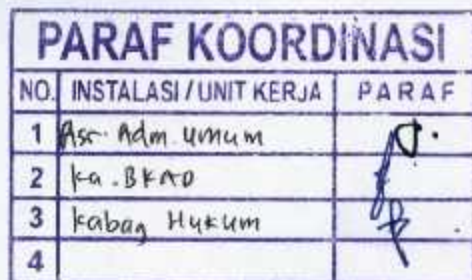 PARAF KOORDINASI
NO. INSTALASI / UNIT KERJA PARAF
1 Asr. Adm. umum
2 ka. BKAD
3 kabag Hukum
4